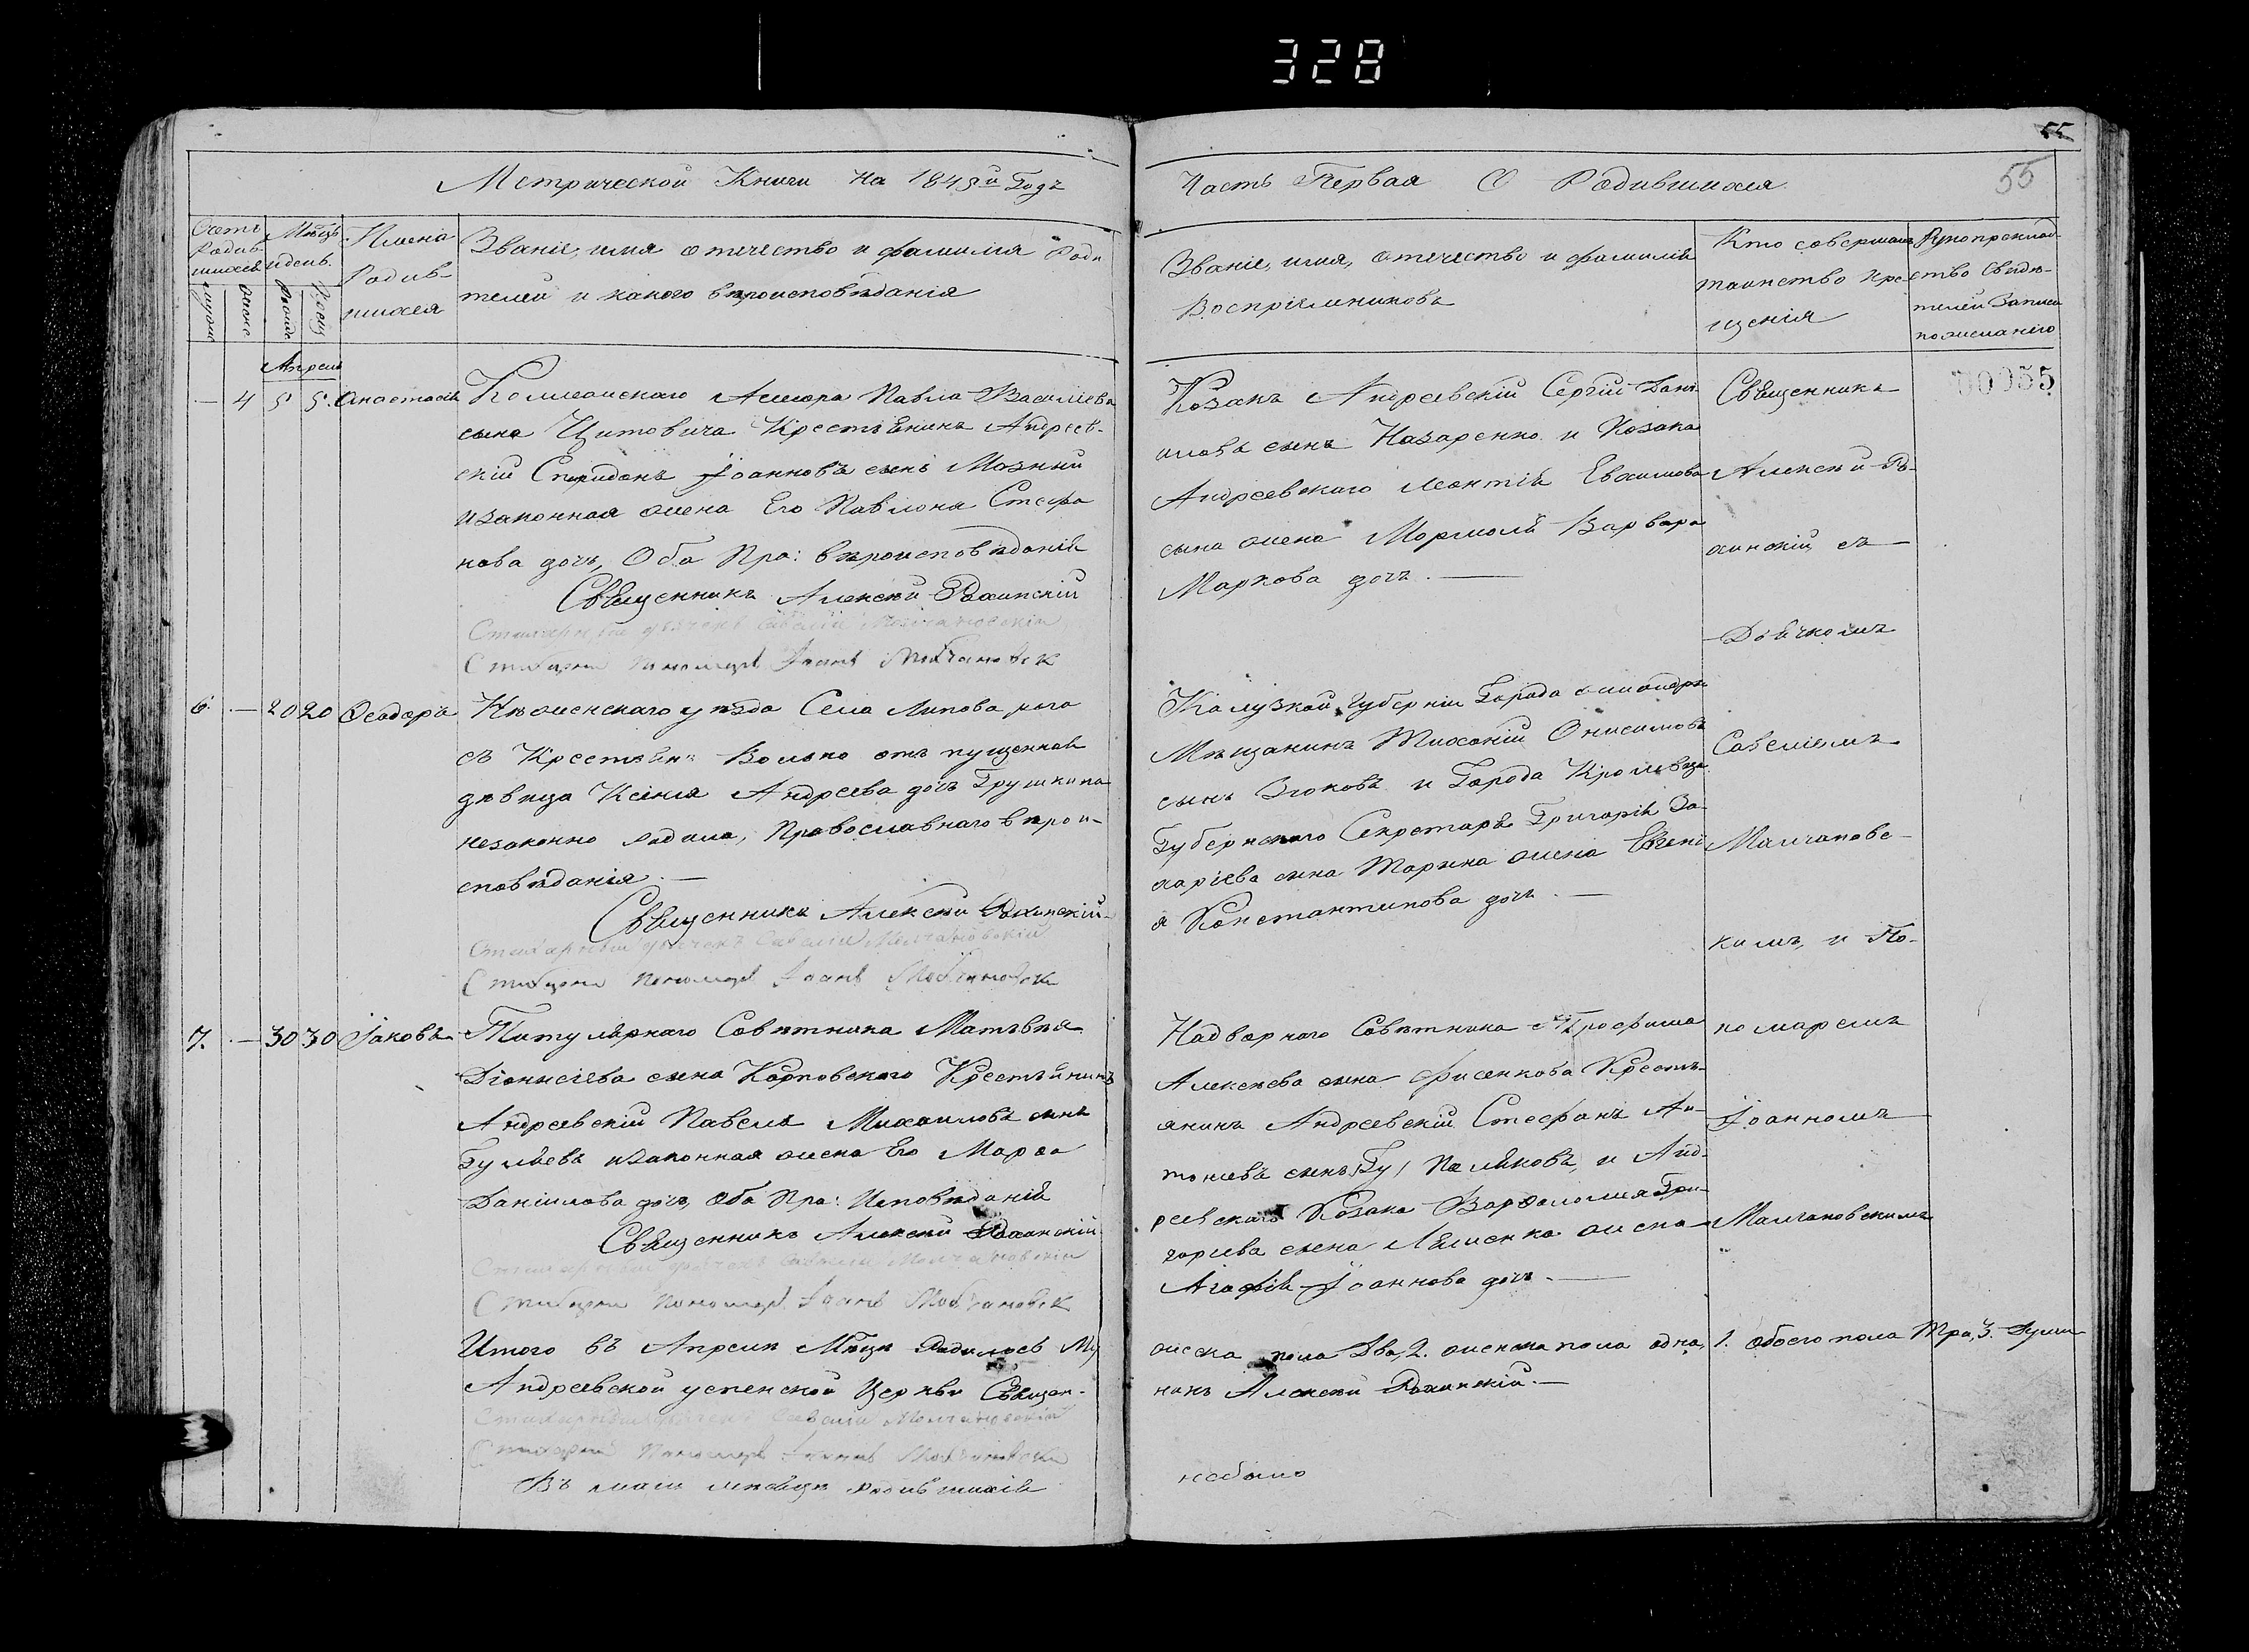 328
55
Метрической Книги на 1845й Годъ
Часть Первая О Родившихся
55
Счетъ Родив-шихся
Мѣсцъ и день.
Имена Родив-шихся
Званіе, имя отечество и фамилія Роди
телей и какого вѣроисповѣданія
Званіе, имя, отечество и фамилія
Воспріемниковъ
Кто совершалъ
таинство кре
щенія
Рукоприклад-
ство свидѣ-
телей записи
по желанію
Апрель
00055
— 4 5 5. Анастасія
Коллежскаго Ассесора Павла Василіева
сына Цитовича Крестьянинъ Андреев-
скій Спиридонъ Іоанновъ сынъ Мазный
и законная жена Его Павлона Стефа
нова дочь, Оба Пра: вѣроисповѣданія
Священникъ Алексѣй
Стихарный дьячекъ Савелій Молчановскій
Стихарни Пономарь Іоаннъ Молчановск
Козакъ Андреевскій Сергій Дани
иловъ сынъ Назаренко и Козака
Андреевскаго Леонтія Евѳимова
сына жена Мормоль Варвара
Маркова дочь. —
Священникъ
Алексѣй
съ
Дьячкомъ
6. — 20 20 Ѳеодоръ
Нѣженскаго уѣзда Села Липова рога
съ Крестьянъ Вольно отъ пущенная
дѣвица Ксенія Андреева дочь Грушкина
незаконно родила, Православнаго вѣрои-
сповѣданія. —
Священникъ Алексѣй
Стихарный дьячекъ Савелій Молчановскій
Стихарни Пономарь Іоаннъ Молчановск
Калузкой Губерніи Города
Мѣщанинъ Тихоній Онисимовъ
сынъ Зюковъ и Города Кролевца
Губернскаго Секретаря Григорія За-
харіева сына Марина жена Евгені
я Константинова дочь. —
Савеліемъ
Малчановс-
кимъ, и По-
7. — 30 30 Іаковъ
Титулярнаго Совѣтника Матѳѣя
Діонисіева сына Карповскаго Крестьянинъ
Андреевскій Павелъ Михаиловъ сынъ
Гуляевъ и законная жена Его Марѳа
Даніилова дочь, Оба Пра: Исповѣданія
Священникъ Алексѣй
Стихарный дьячекъ Савелій Молчановскій
Стихарни Пономарь Іоаннъ Молчановск
Надворнаго Совѣтника Трофима
Алексѣева сына Фисенкова Кресть-
янинъ Андреевскій Стефанъ Ан-
тоніевъ сынъ /Гу/ Поляковъ, и Анд-
реевскаго Козака Варѳоломея Гри-
горіева сына Ляшенка жена
Агафія Іоаннова дочь. —
номаремъ
Іоанномъ
Малчановскимъ
Итого въ Апрелѣ Мѣсцѣ Родилось Му
жеска пола Два, 2. женска пола одна, 1. обоего пола Тра, 3. души
Андреевской успенской Церкви Священ-
никъ Алексѣй
Стихарный дьячекъ Савелій Молчановскій
Стихарни Пономарь Іоаннъ Молчановск
Въ маи мѣсяцѣ родившихся
небыло